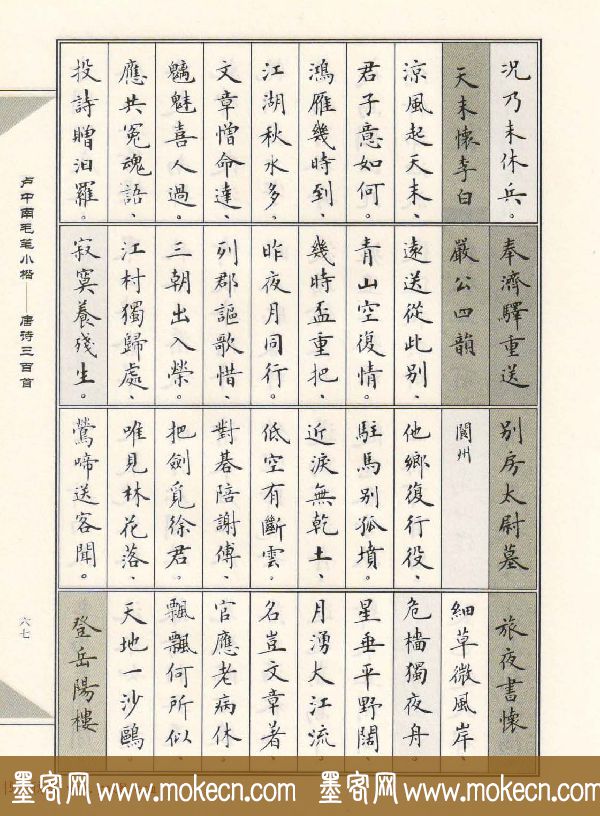 況乃未休兵。
天末懷李白
涼風起天末、
君子意如何。
鴻雁幾時到、
江湖秋水多。
文章憎命達、
魑魅喜人過。
應共冤魂語、
投詩贈汨羅。
奉濟驛重送
嚴公四韻
遠送從此别、
青山空復情。
幾時盃重把、
昨夜月同行。
列郡謳歌惜、
三朝出入榮。
江村獨歸處、
寂寞養殘生。
别房太尉墓
閬州
他鄉復行役、
駐馬别孤墳。
近淚無乾土、
低空有斷雲。
對碁陪謝傅、
把劍覓徐君。
唯見林花落、
鶯啼送客聞。
旅夜書懷
細草微風岸、
危檣獨夜舟。
星垂平野闊、
月湧大江流。
名豈文章著、
官應老病休。
飄飄何所似、
天地一沙鷗。
登岳陽樓
卢中南毛笔小楷——唐诗三百首
六七
墨客网 www.mokecn.com 墨客网 www.mokecn.com